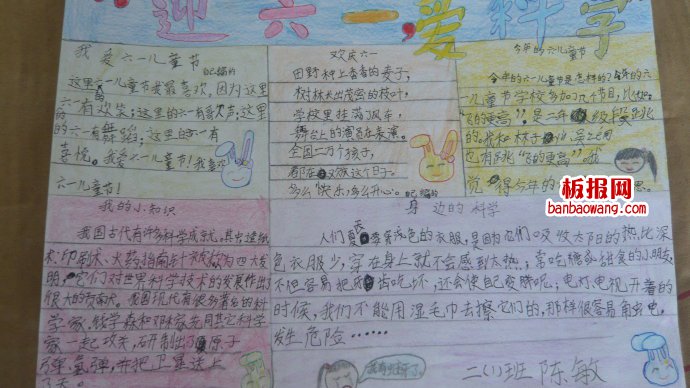 迎六一，爱科学
我爱六一儿童节
自己编的
这里的六一儿童节我最喜欢，因为这里
六一有欢笑；这里的六一有歌声；这里
的六一有舞蹈；这里的六一有
喜悦。我爱六一儿童节！我喜欢
六一儿童节！
欢庆六一
田野种上香香的麦子，
树林长出茂密的枝叶，
学校里挂满风车，
舞台上的演员在表演。
全国二万个孩子，
都在欢这个日子。
多么快乐，多么开心。
自己编的
今年的六一儿童节
今年的六一儿童节是怎样的？今年的六一
儿童节学校参加了几个节目，比如：
"飞的更高"是二年级段跳
的，我和林子
也有跳"飞的更高"哦
觉得今年的思。
板报网
banbaowang.com
我的小知识
我国古代有许多科学成就。其中造纸
术、印刷术、火药、指南针被称为四大发
明，它们对世界科学技术的发展作出
很大的贡献。我国现代有很多著名的科
学家，钱学森和邓稼先同其它科学
家一起攻关，研制出了原子
弹、氢弹，并把卫星送上
了天。
身边的科学
人们夏天爱穿浅色的衣服，是因为它们吸收太阳的热比深
色衣服少，穿在身上就不会感到太热；常吃糖、甜食的小朋友，
不但容易把牙齿吃坏，还会使自己变胖呢；电灯、电视开着的
时候，我们不能用湿毛巾去擦它们的，那样很容易触电，
发生危险……
我有虫牙了。
二（1）班 陈敏